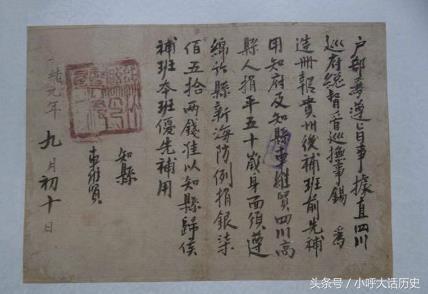 户部为遵旨事據直四川
巡府總督音巡撫事錫 為
造册報貴州後補班前先補
用知府及知縣東維賢四川高
縣人捐平五十歲身面須遵
綿祊縣新海防例捐銀柒
佰五拾两錢准以知縣歸侯
補班本班優先補用
知縣
東維賢
緒元年 九月初十日
头条号/小呼大话历史